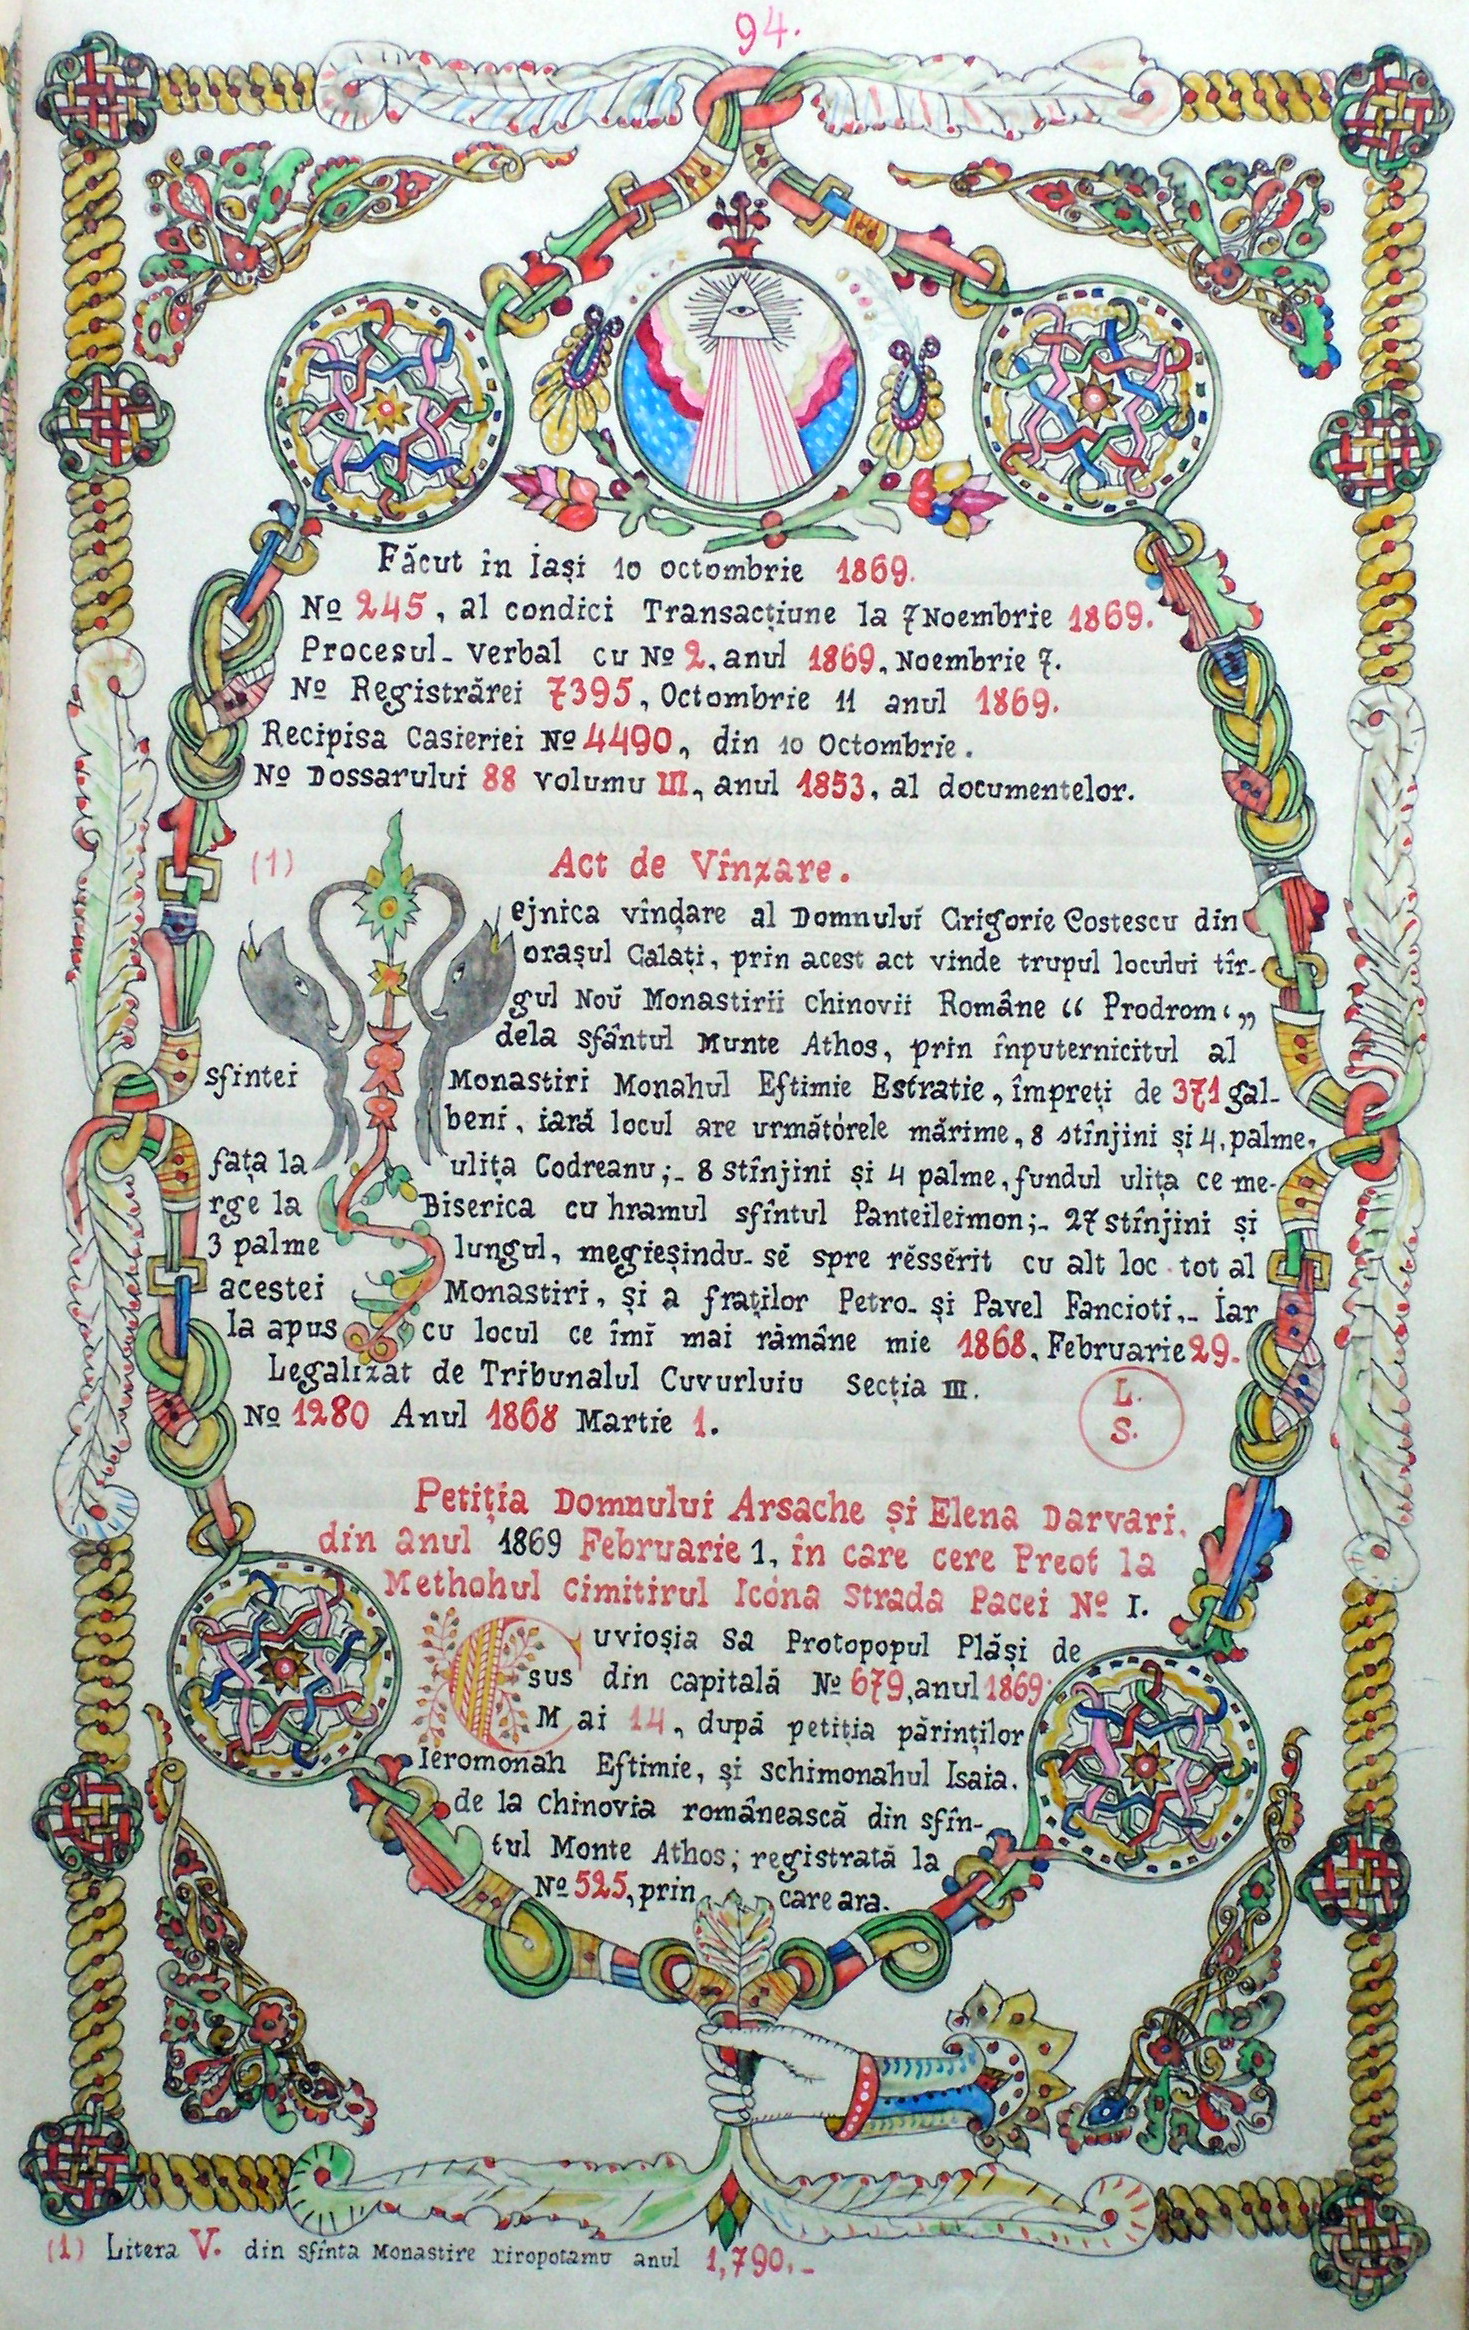 94.
Făcut în Iași 10 octombrie 1869.
Nº 245, al condici Transacțiune la 7 Noembrie 1869.
Procesul-verbal cu Nº 2, anul 1869, Noembrie 7.
Nº Registrărei 7395, Octombrie 11 anul 1869.
Recipisa Casieriei Nº 4490, din 10 Octombrie.
Nº Dossarului 88 volumu III, anul 1853, al documentelor.
(1) Act de Vînzare.
Vejnica vîndare al Domnuluĭ Grigorie Costescu din
orașul Galați, prin acest act vinde trupul locului tîr-
gul Noŭ Monastirii Chinovii Române “ Prodrom‘„
dela sfântul Munte Athos, prin înputernicitul al
sfintei Monastiri Monahul Eftimie Estratie, împreți de 371 gal-
beni, iară locul are următórele mărime, 8 stînjini și 4, palme,
fața la ulița Codreanu;- 8 stînjini și 4 palme, fundul ulița ce me-
rge la Biserica cu hramul sfîntul Panteileimon;- 27 stînjini și
3 palme lungul, megieșindu-sĕ spre rĕssĕrit cu alt loc tot al
acestei Monastiri, și a fraților Petro- și Pavel Fancioti,- Iar
la apus cu locul ce îmĭ mai rămâne mie 1868, Februarie 29.
Legalizat de Tribunalul Cuvurluiu Secția III.
Nº 1280 Anul 1868 Martie 1.
L.
S.
Petiția Domnului Arsache și Elena Darvari,
din anul 1869 Februarie 1, în care cere Preot la
Methohul Cimitirul Icóna Strada Pacei Nº I.
Cuvioșia Sa Protopopul Plăși de
sus din capitală Nº 679, anul 1869
Mai 14, după petiția părinților
Ieromonah Eftimie, și schimonahul Isaia,
de la Chinovia românească din sfîn-
tul Monte Athos; registrată la
Nº 525, prin care ara.
(1) Litera V. din sfînta Monastire xiropotamu anul 1,790.-